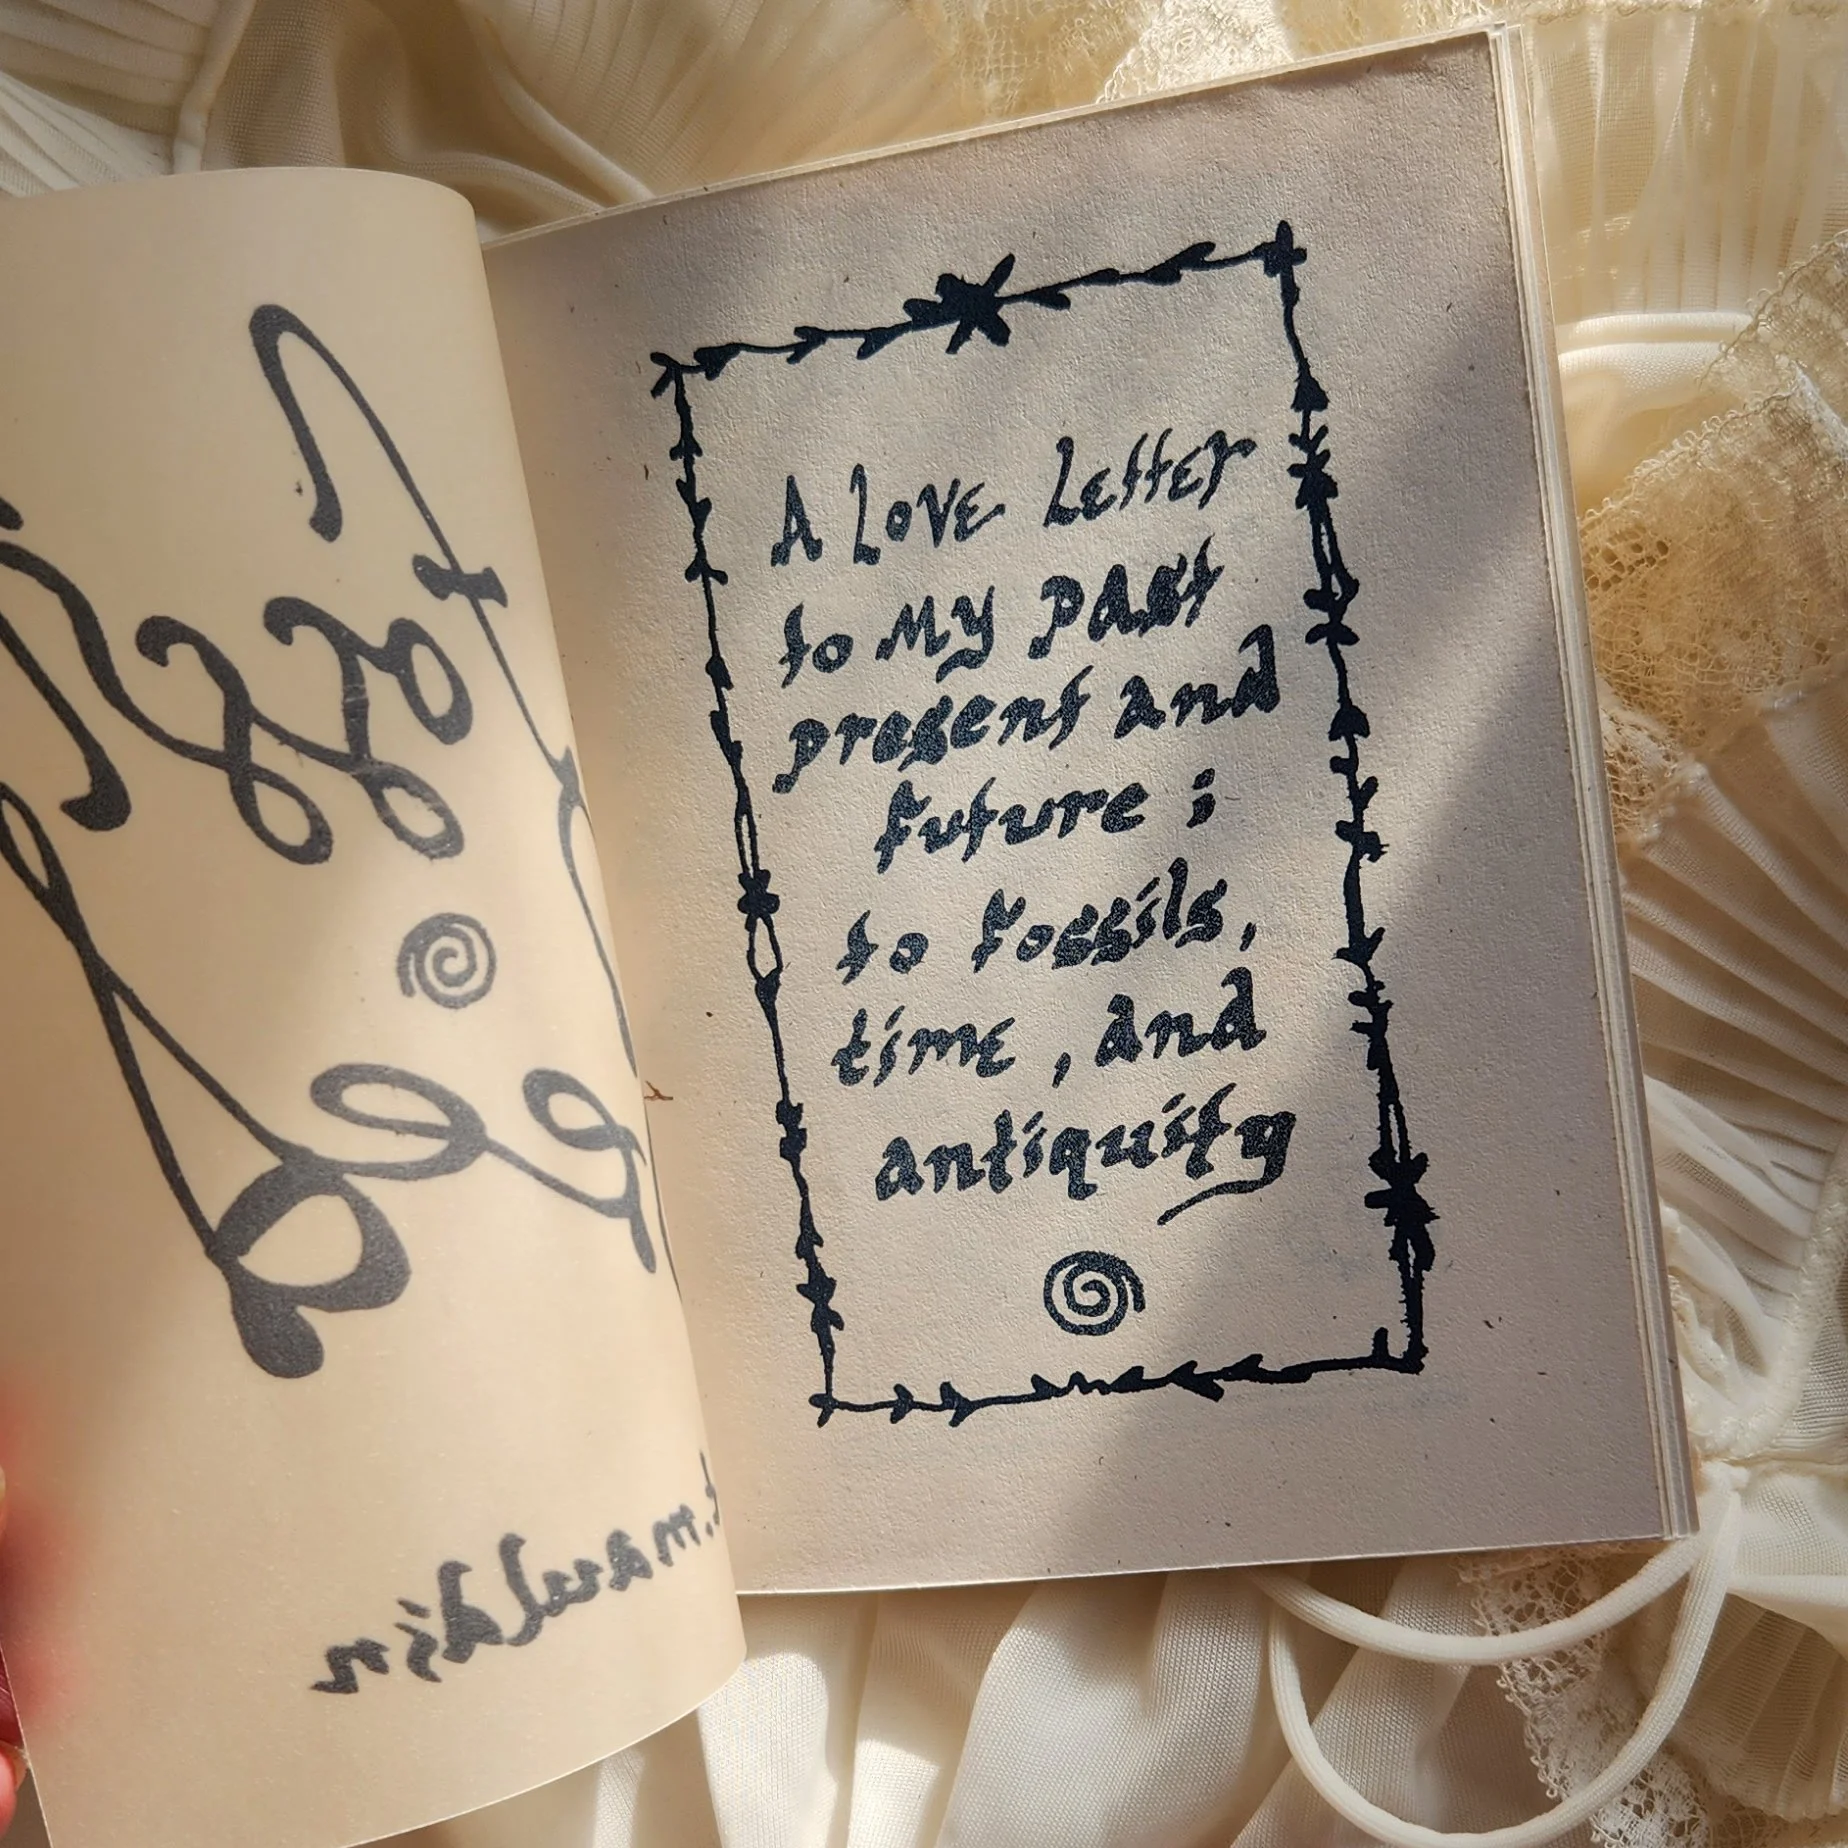 t.mauldin
A Love Letter
to My past
present and
future ;
to fossils,
time , and
antiquity